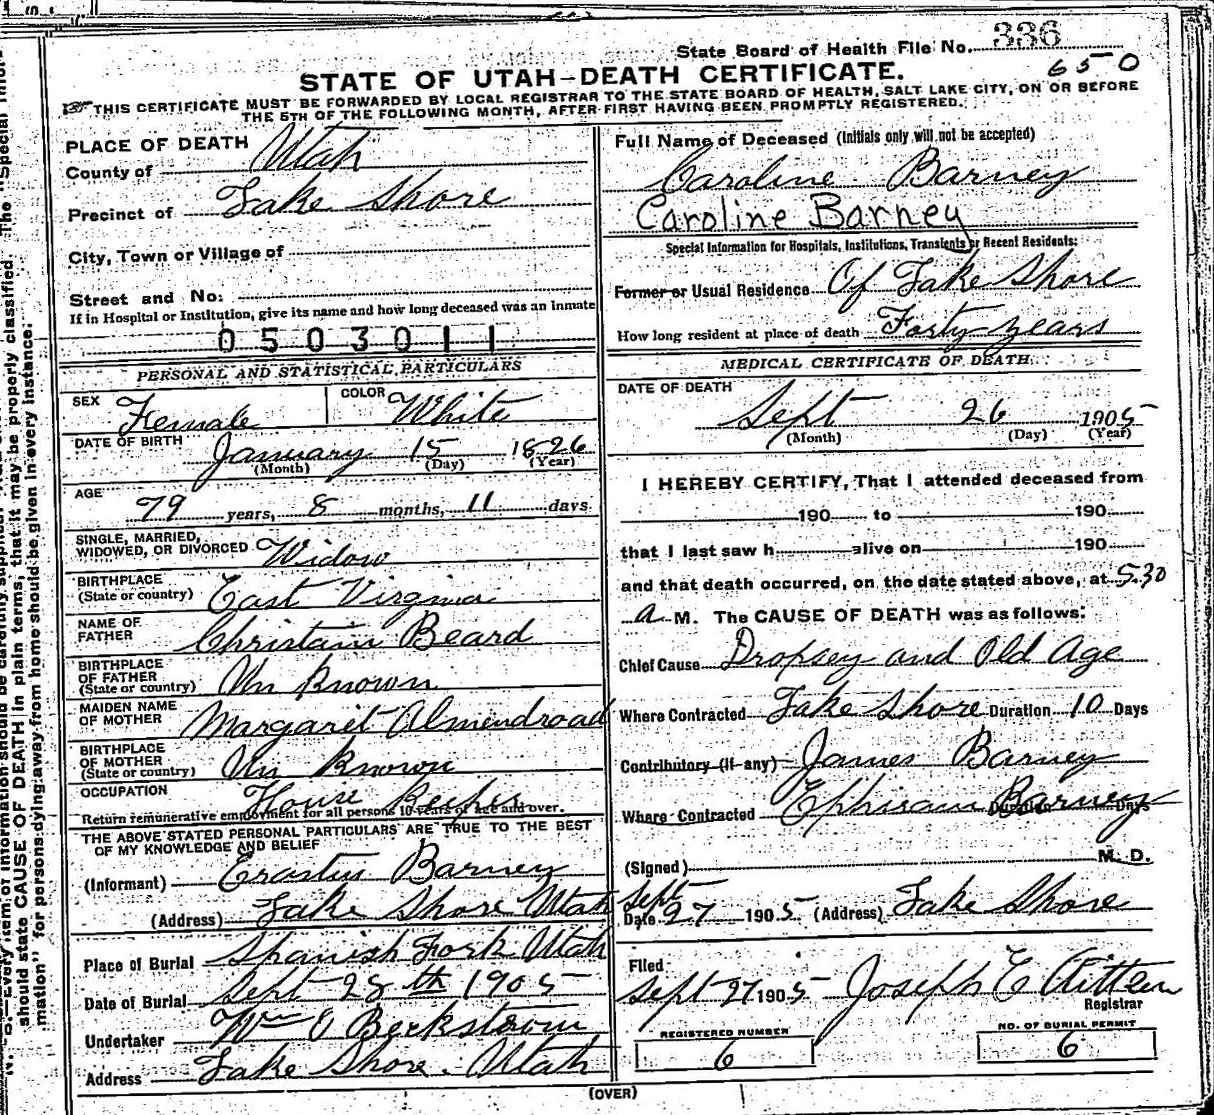 State Board of Health File No. 336
650
STATE OF UTAH—DEATH CERTIFICATE.
THIS CERTIFICATE MUST BE FORWARDED BY LOCAL REGISTRAR TO THE STATE BOARD OF HEALTH, SALT LAKE CITY, ON OR BEFORE
THE 5TH OF THE FOLLOWING MONTH, AFTER FIRST HAVING BEEN PROMPTLY REGISTERED.
PLACE OF DEATH
County of Utah
Precinct of Lake Shore
City, Town or Village of
Street and No:
If in Hospital or Institution, give its name and how long deceased was an inmate
0503011
PERSONAL AND STATISTICAL PARTICULARS
SEX Female COLOR White
DATE OF BIRTH January 15 1826
(Month) (Day) (Year)
AGE
79 years, 8 months, 11 days
SINGLE, MARRIED,
WIDOWED, OR DIVORCED Widow
BIRTHPLACE
(State or country) East Virginia
NAME OF
FATHER Christain Beard
BIRTHPLACE
OF FATHER
(State or country) Un Known
MAIDEN NAME
OF MOTHER Margaret Almendroad
BIRTHPLACE
OF MOTHER
(State or country) Un Known
OCCUPATION House Keeper
Return remunerative employment for all persons 10 years of age and over.
THE ABOVE STATED PERSONAL PARTICULARS ARE TRUE TO THE BEST
OF MY KNOWLEDGE AND BELIEF
(Informant) Erastus Barney
(Address) Lake Shore Utah
Place of Burial Spanish Fork Utah
Date of Burial Sept 28th 1905
Undertaker Wm O Beckstrom
Address Lake Shore. Utah
Full Name of Deceased (Initials only will not be accepted)
Caroline Barney
Caroline Barney
Special Information for Hospitals, Institutions, Transients or Recent Residents:
Former or Usual Residence Of Lake Shore
How long resident at place of death Forty years
MEDICAL CERTIFICATE OF DEATH
DATE OF DEATH
Sept 26 1905
(Month) (Day) (Year)
I HEREBY CERTIFY, That I attended deceased from
190 to 190
that I last saw h alive on 190
and that death occurred, on the date stated above, at 5.30
a M. The CAUSE OF DEATH was as follows:
Chief Cause Dropsey and Old Age
Where Contracted Lake Shore Duration 10 Days
Contributory (if any) James Barney
Where Contracted Ephiram Barney Duration Days
(Signed) M. D.
Sept
Date 27 1905 (Address) Lake Shore
Filed
Sept 27 1905 Joseph E Aitken
Registrar
REGISTERED NUMBER
6
NO. OF BURIAL PERMIT
6
(OVER)
should state CAUSE OF DEATH in plain terms, that it may be properly classified. The "Special Infor-
mation" for persons dying away from home should be given in every instance.